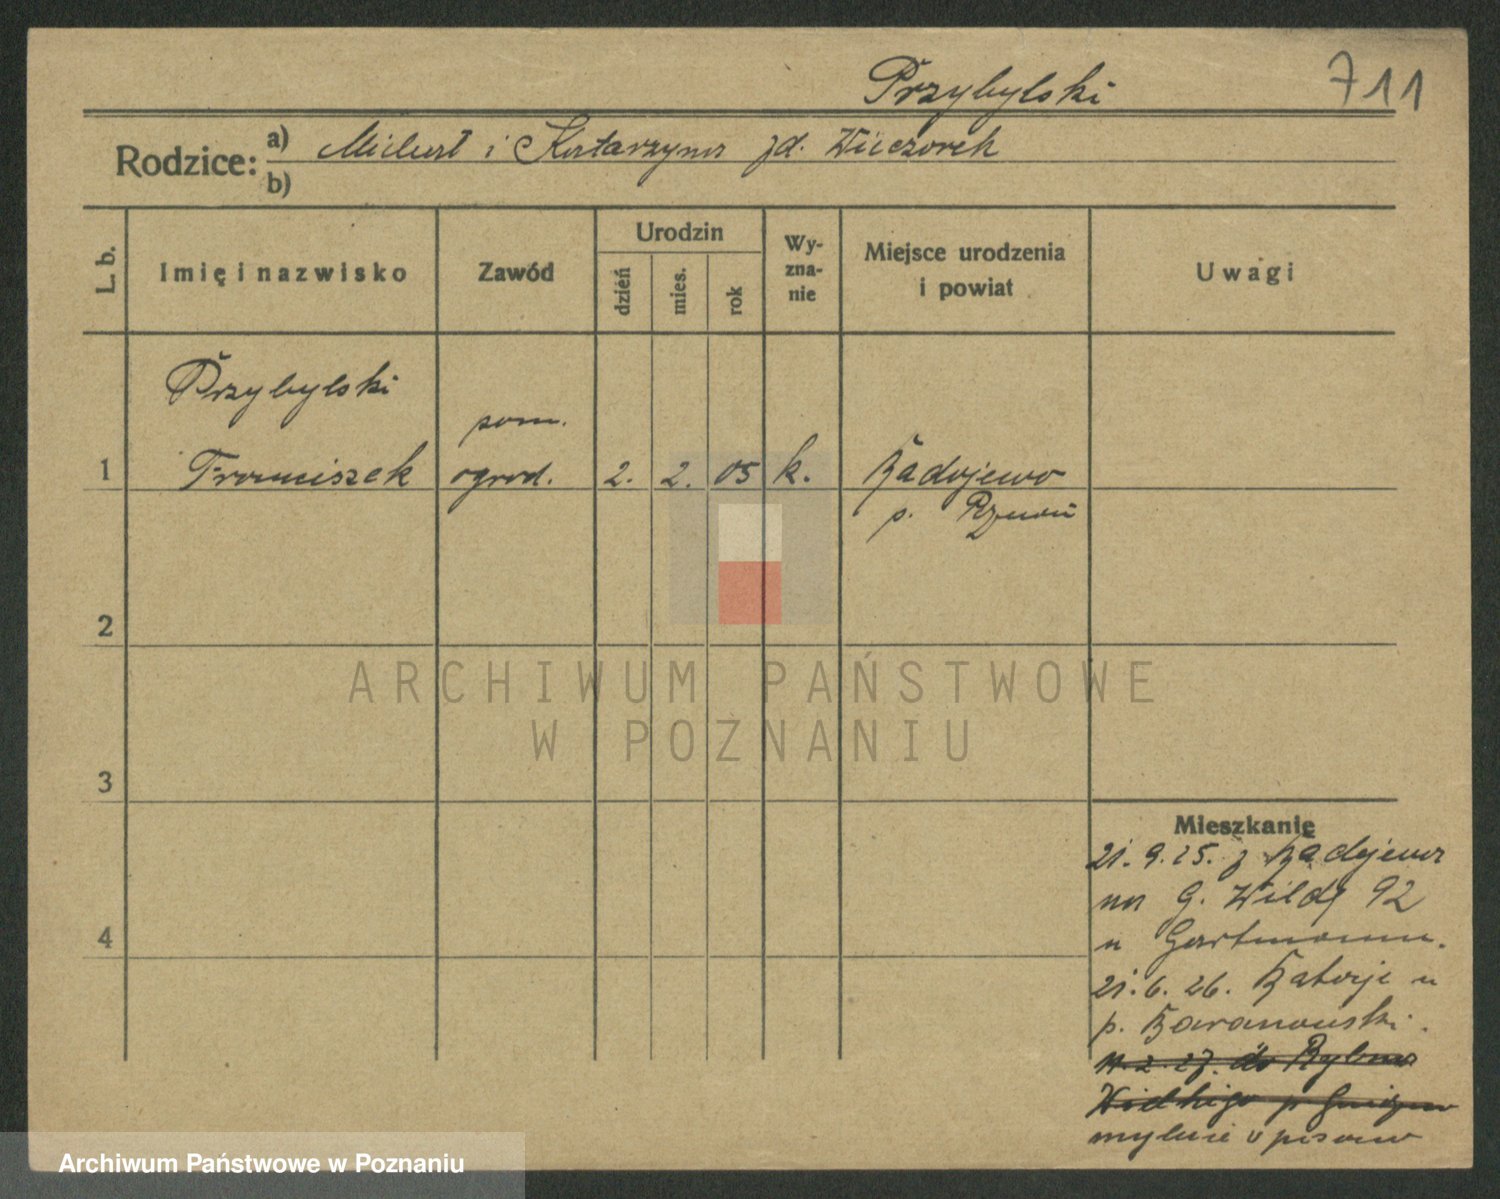 Przybylski
711
Rodzice: a) Michał i Katarzyna zd. Wieczorek
b)
L. b.
Imię i nazwisko
Zawód
Urodzin
dzień
mies.
rok
Wy-
zna-
nie
Miejsce urodzenia
i powiat
Uwagi
Przybylski
pom.
1 Franciszek ogrod. 2. 2. 05 k. Radojewo
p. Poznań
2
3
4
ARCHIWUM PAŃSTWOWE
W POZNANIU
Mieszkanie
21. 9. 25. z Radojewa
na G. Wildę 92
u Hartmann.
21. 6. 26. u
p. Baranowski.
11. 2. 27. do Rybna
Wielkiego p Gniezno
mylnie wpisano
Archiwum Państwowe w Poznaniu